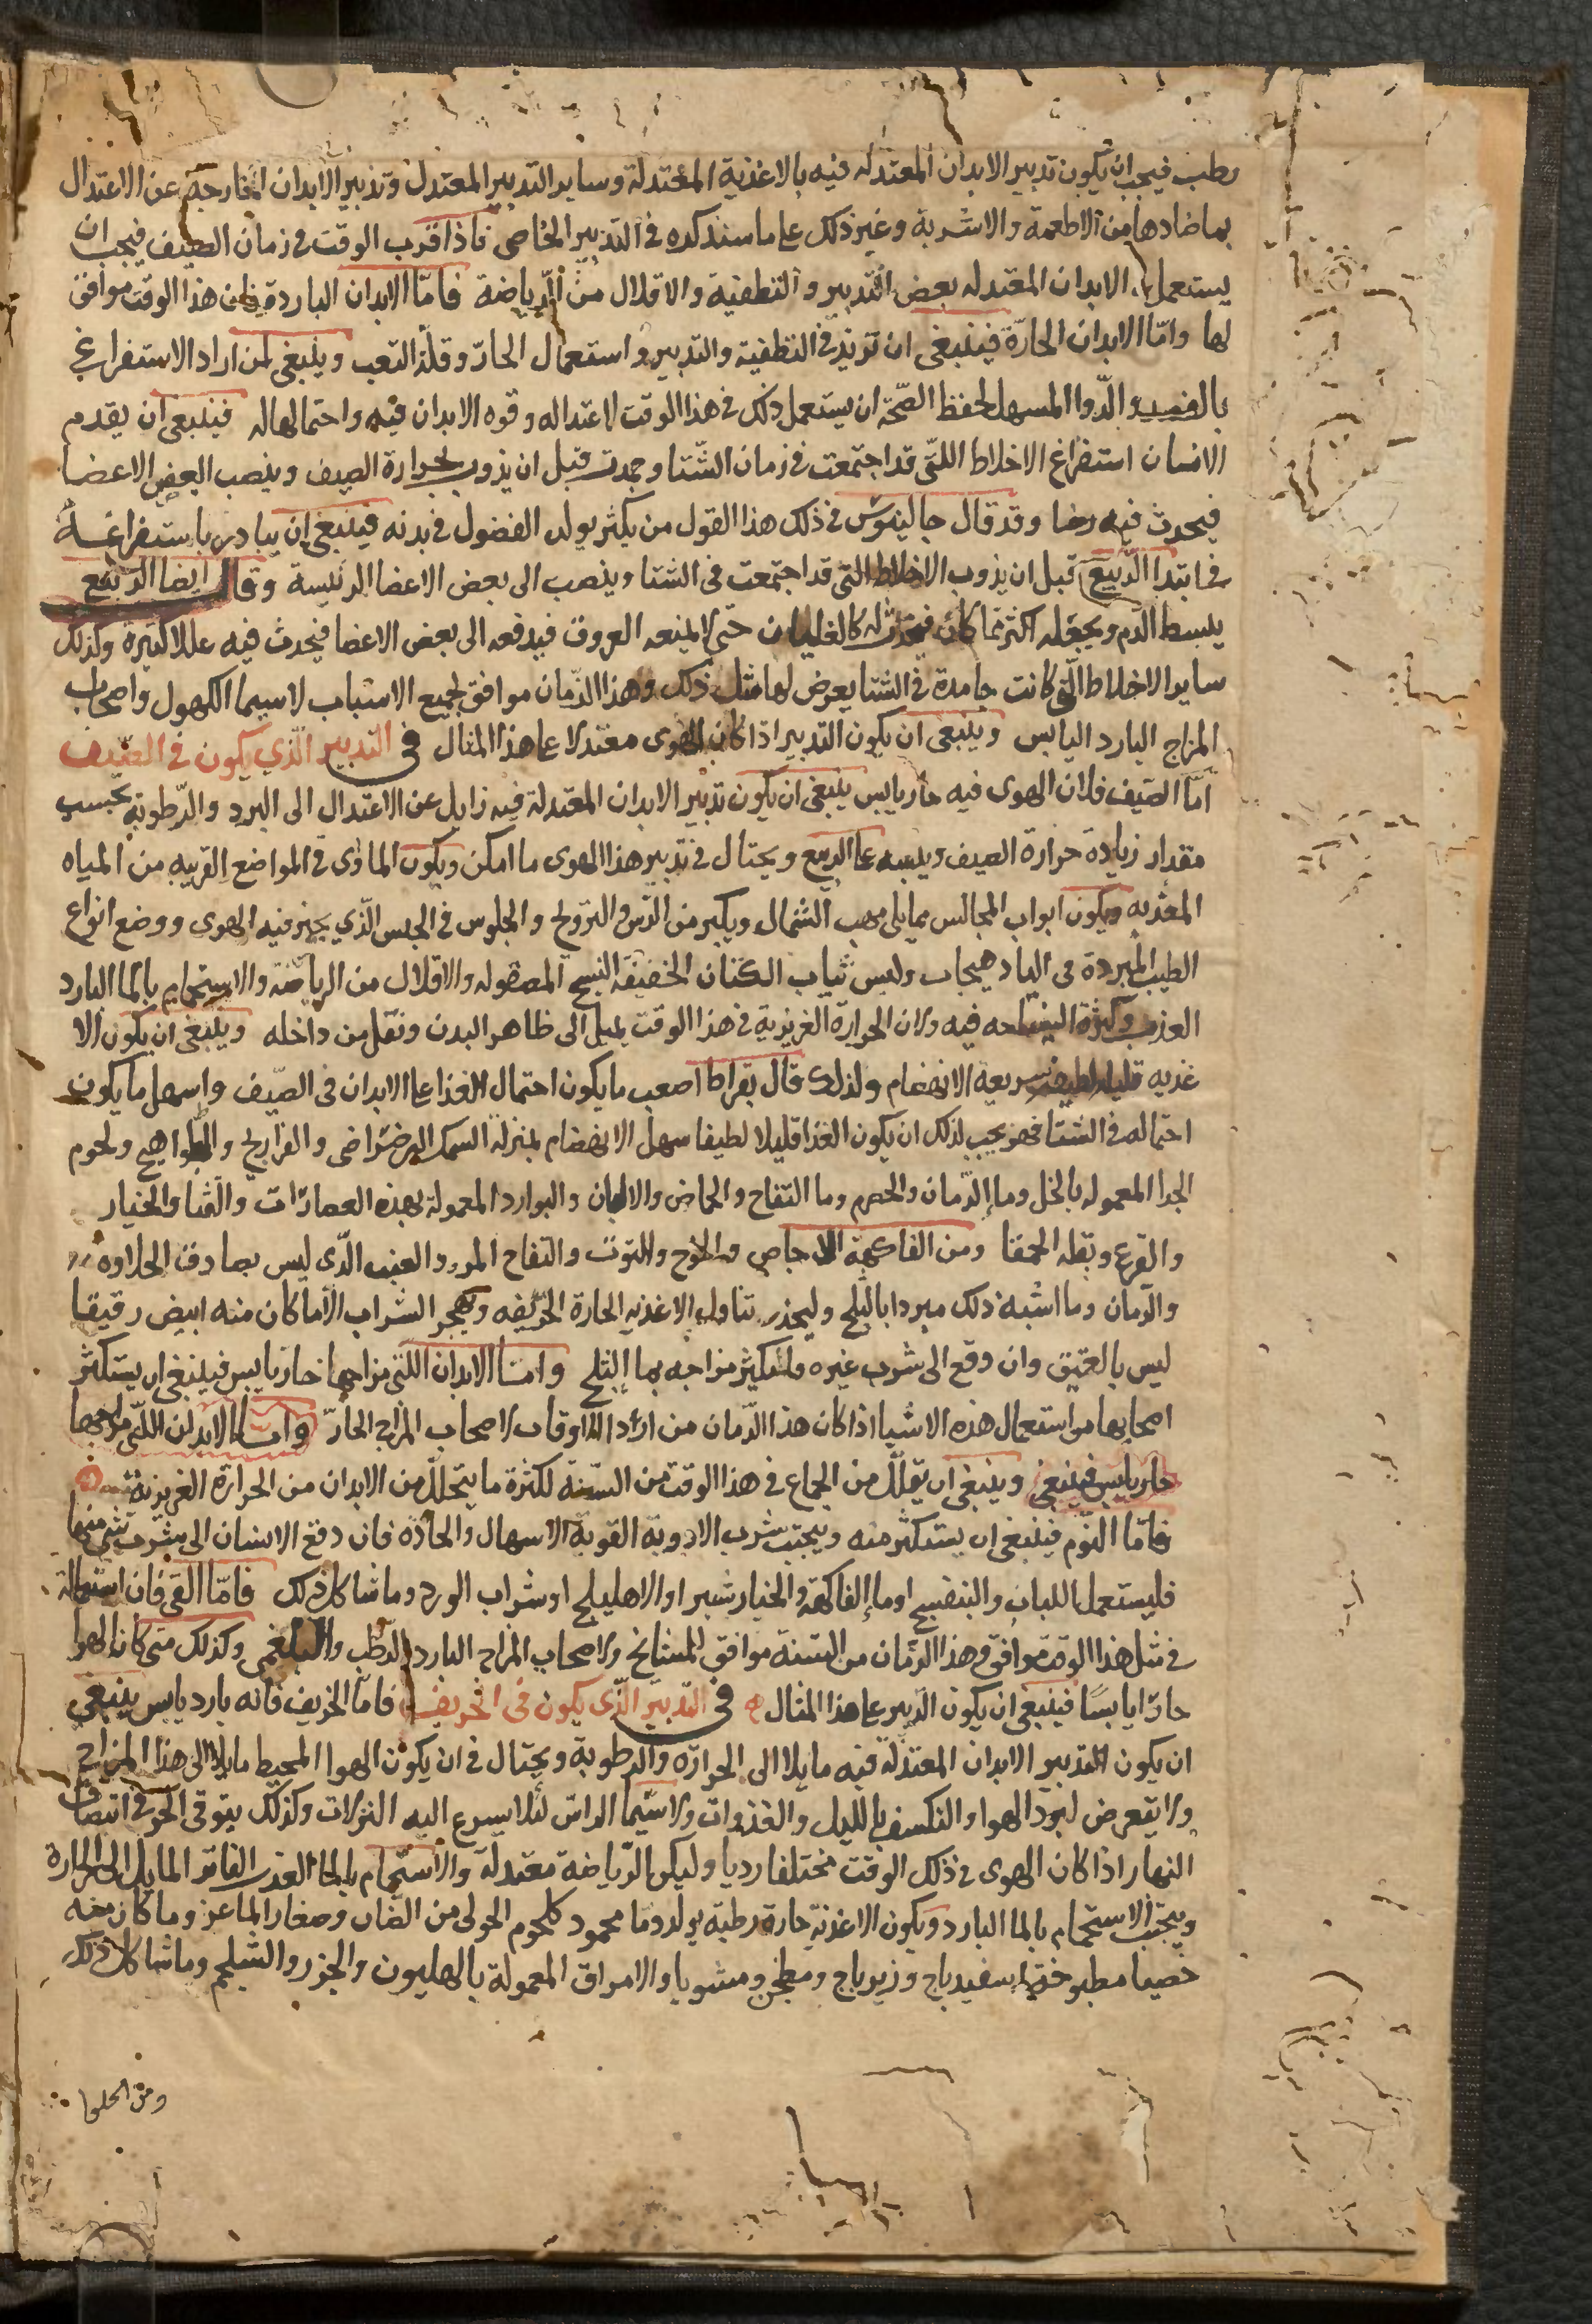 رطب فيجب ان يكون تدبير الابدان المعتدله فيه بالاغذية المعتدلة وساير التدبير المعتدل وتدبير الابدان الخارجة عن الاعتدال
بما ضادها من الاطعمة والاشربة وغير ذلك على ما سنذكره في التدبير الخاصي فاذا قرب الوقت في زمان الصيف فيجب ان
يستعمل الابدان المعتدله بعض التدبير والتطفية والاقلال من الرياضة فامّا الابدان الباردة فان هذا الوقت موافق
لها وامّا الابدان الحارّة فينبغى ان تزيد في التطفية والتدبير واستعمال الحارّ وقلّة التعب وينبغي لمن اراد الاستفراغ
بالفصد والدّوا المسهل لحفظ الصّحّة ان يستعمل ذلك في هذا الوقت لاعتداله وقوه الابدان فيه واحتمالها له فينبغي ان يقدم
الانسان استفراغ الاخلاط اللتّى قد اجتمعت في زمان الشّتا وجمدت قبل ان يذوب بحرارة الصيف وينصب لبعض الاعضا
فيحدث فيه مرضا وقد قال جالينوس في ذلك هذا القول من يكثر تولد الفضول في بدنه فينبغي ان يبادر باستفراغه
في ابتدا الرّبيع قبل ان يذوب الاخلاط التي قد اجتمعت في الشتا وينصب الى بعض الاعضا الرئيسة وقال ايضا الربيع
يبسط الدم ويجعله اكثر مما كان فيحدث له كالغليان حتّى لا يمنعه العروق فيدفعه الى بعض الاعضا فيحدث فيه عللا كثيرة وكذلك
ساير الاخلاط الّتي كانت جامدة في الشتا يعرض لها مثل ذلك وهذا الزّمان موافق لجميع الاسباب لاسيما الكهول واصحاب
المزاج البارد اليابس وينبغى ان يكون التدبير اذا كان الهوى معتدلا على هذا المثال في التدبير الّذي يكون في الصّيف
امّا الصّيف فلان الهوى فيه حار يابس ينبغي ان يكون تدبير الابدان المعتدلة فيه زايل عن الاعتدال الى البرد والرّطوبة بحسب
مقدار زيادة حرارة الصيف ويبسه على الربيع ويحتال في تدبير هذا الهوى ما امكن ويكون الماوى في المواضع القريبه من المياه
العذبه ويكون ابواب المجالس مما يلى مهب الشمال ويكثر من الرّش والتروّح والجلوس في الخيش الّذي يجيز فيه الهوى ووضع انواع
الطيب المبردة في الباد هيجات ولبس ثياب الكتان الخفيفة النسج المصقوله والاقلال من الرياضة والاستحمام بالما البارد
العذب وكثرة السباحه فيه ولان الحرارة الغريزية في هذا الوقت يميل الى ظاهر البدن وتقل من داخله وينبغى ان يكون الا
غذيه قليله لطيفه سريعة الانهضام ولذلك قال بقراط اصعب ما يكون احتمال الغذا على الابدان في الصّيف واسهل ما يكون
احتماله في الشتا فمن يجب لذلك ان يكون الغذا قليلا لطيفا سهل الانهضام بمنزلة السمك الرضراضى والفراريج والطواهيج ولحوم
الجدا المعموله بالخل وما الرّمان والحصرم وما التفاح والحماض والالبان والبوارد المعمولة بهذه العصارات والقثا والخيار
والقرع وبقله الحمقا ومن الفاكهة الاجاص والخوخ والتوت والتفاح المز والعنب الّذى ليس بصادق الحلاوه
والرّمان وما اشبه ذلك مبردا بالثلج وليحذر تناول الاغذيه الحارة الحرّيفه ويهجر الشراب الّا ما كان منه ابيض رقيقا
ليس بالعتيق وان دفع الى شرب غيره فليكثر مزاجه بما الثلج وامّا الابدان اللتي مزاجها حار يابس فينبغى ان يستكثر
اصحابها من استعمال هذه الاشيا اذا كان هذا الزّمان من اردا الاوقات لاصحاب المزاج الحارّ وامّا الابدان اللتي مزاجها
حار يابس فينبغي وينبغي ان يقلّل من الجماع في هذا الوقت من السّنة لكثرة ما يتحلل من الابدان من الحرارة الغريزية
فامّا النّوم فينبغى ان يستكثر منه ويجتنب شرب الادوية القويّة الاسهال والحادّه فان دفع الانسان الى شرب شي منها
فليستعمل اللباب والبنفسج او ما الفاكهة والخيار شنبر او الاهليلج او شراب الورد وما شاكل ذلك فامّا القى فان استعماله
في مثل هذا الوقت موافق وهذا الزمان من السّنة موافق للمشايخ ولاصحاب المزاج البارد الرّطب والبلغمي وكذلك متى كان الهوا
حارّا يابسًا فينبغى ان يكون التدبير على هذا المثال في التدبير الّذى يكون في الخريف فامّا الخريف فانه بارد يابس ينبغي
ان يكون التدبير الابدان المعتدلة فيه مايلا الى الحرارة والرطوبة ويحتال في ان يكون الهوا المحيط مايلا الى هذا المزاج
ولا يتعرض لبرد الهوا والتكشف بالليل والغذوات ولاسيّما الراس لئلا يسرع اليه النزلات وكذلك يتوقى الحر في انتصاف
النهار اذا كان الهوى في ذلك الوقت مختلفا رديا وليكن الرّياضة معتدلة والاستحمام بالما العذب الفاتر المايل الى الحرارة
ويجتنب الاستحمام بالما البارد ويكون الاغذية حارة رطبة يولد دما محمود كلحوم الحولى من الضان وصغار الماعز وما كان منه
خصيا مطبوخة اسفيدباج وزيرباج ومطجن ومشويا والامراق المعمولة بالهليون والجزر والشلجم وما شاكل ذلك
ومن الحلوا